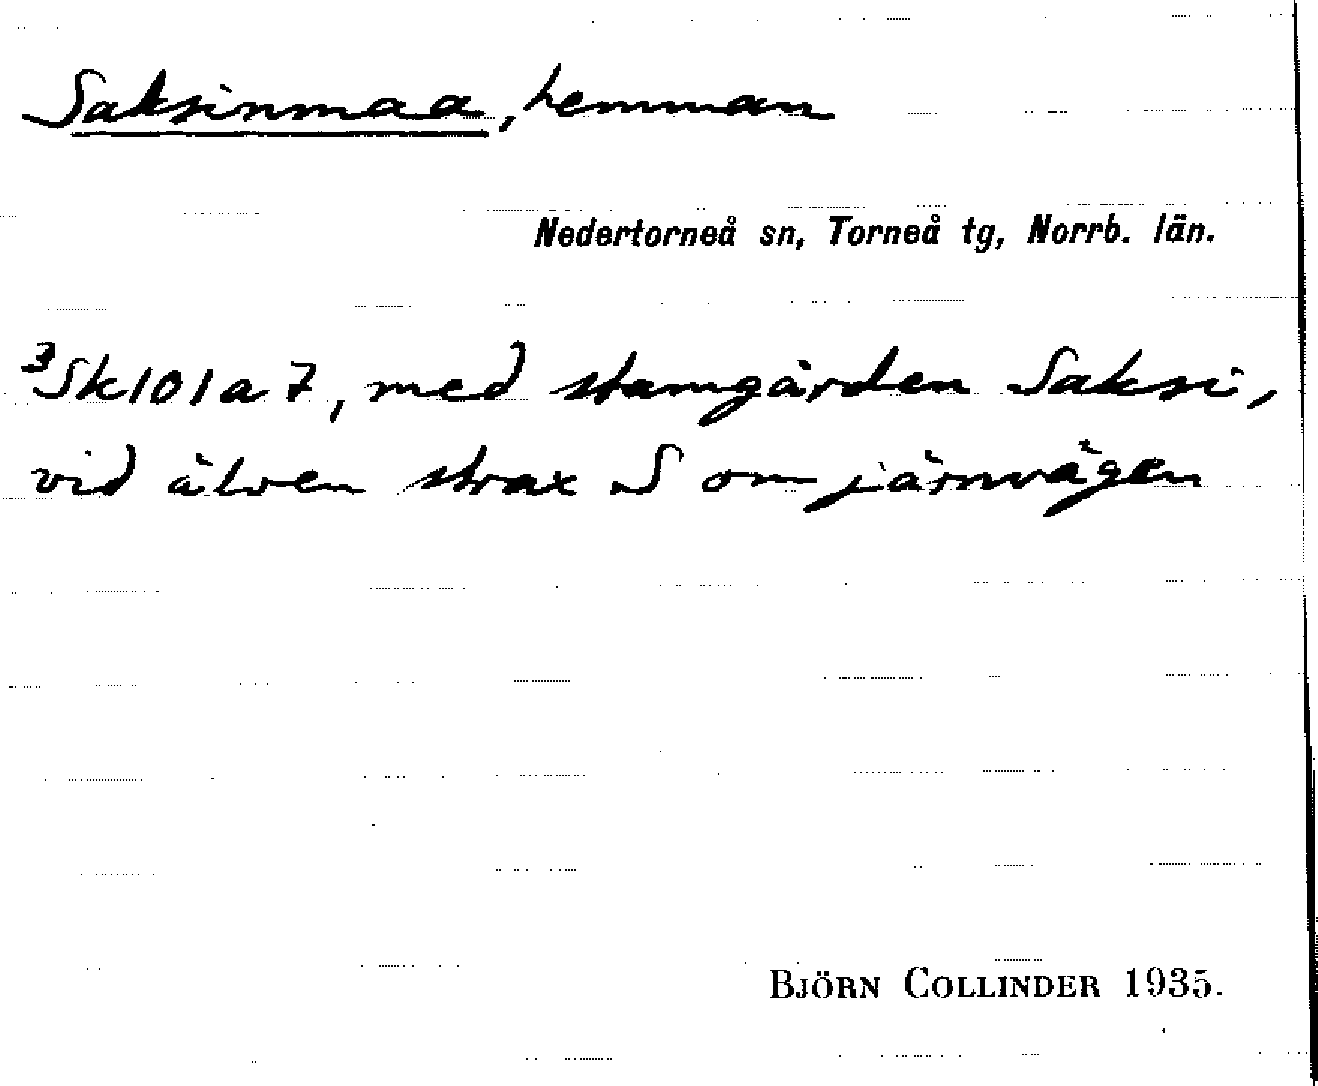 Saksinmaa, hemman
Nedertorneå sn, Torneå tg, Norrb. län.
³Sk101a7, med stamgården Saksi,
vid älven strax S om järnvägen
BJÖRN COLLINDER 1935.